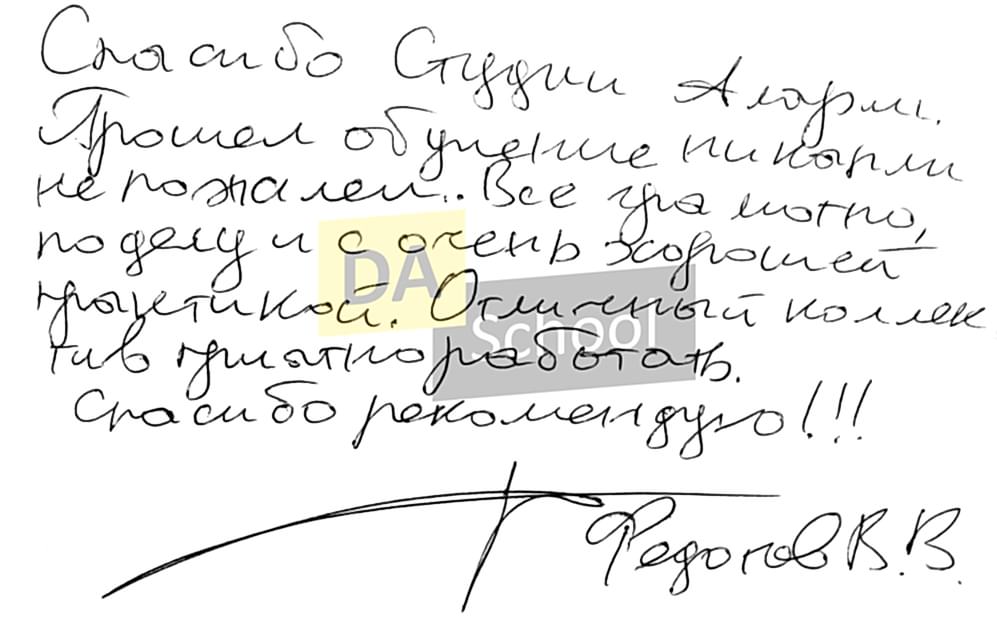 Спасибо Студии Алармс.
Прошел обучение ни капли
не пожалел.. Все грамотно,
по делу и с очень хорошей
практикой. Отличный коллек
тив приятно работать.
Спасибо рекомендую!!!
Федотов В.В.
DA
School